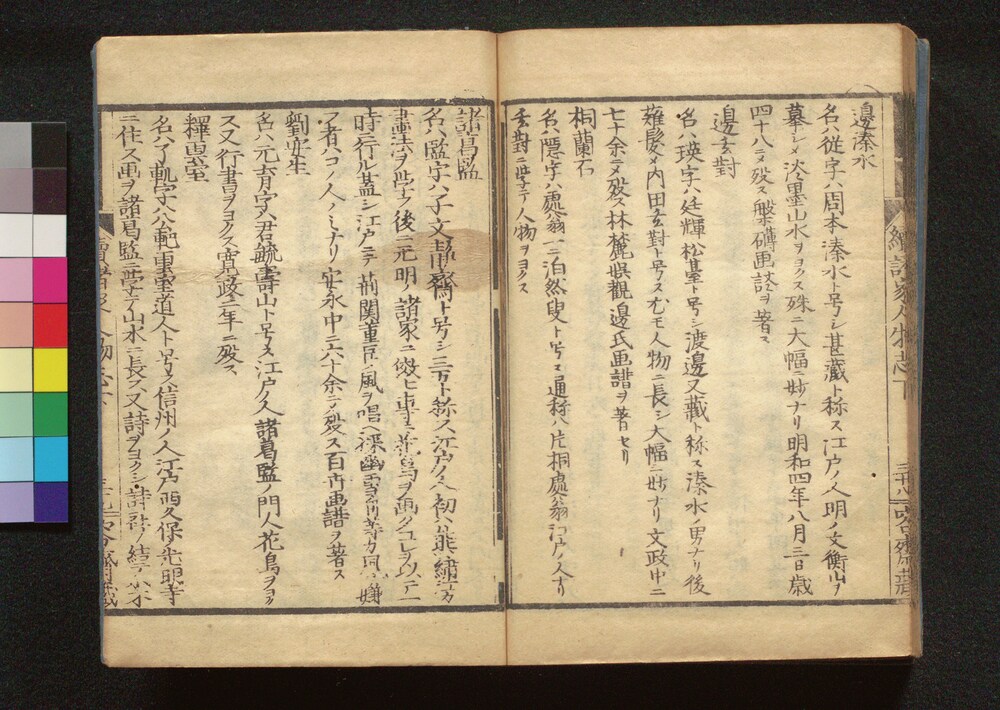 續諸家人物志下
三十八
邊溱水
名ハ從字ハ周本溱水ト号シ甚藏ト称ス江戸ノ人明ノ文衡山ヲ
摹シメ淡墨山水ヲヨクス殊ニ大幅ニ妙ナリ明和四年八月三日歳
四十八ニメ殁ス磐礴画談ヲ著ス
邊玄對
名ハ瑛字ハ廷輝松堂ト号シ渡邊又藏ト称ス溱水ノ男ナリ後
薙髪メ内田玄對ト号ス尤モ人物ニ長シ大幅ニ妙ナリ文政中ニ
七十余ニメ殁ス林麓娯觀邊氏画譜ヲ著セリ
桐蘭石
名ハ隱字ハ處翁一ニ泊然叟ト号ス通称ハ片桐處翁江戸ノ人ナリ
玄對ニ学テ人物ヲヨクス
諸葛監
名ハ監字ハ子文靜齋ト号シ三万ト称ス江戸ノ人初ハ熊繡江カ
畫法ヲ学フ後ニ元明ノ諸家ニ倣ヒ專ラ花鳥ヲ画クコレヲ以テ一
時ニ行ル蓋シ江戸ニテ荊関董臣ノ風ヲ唱ヘ深幽雪舟等カ風ヲ嫌
フ者ハコノ人ノミナリ安永中ニ六十余ニテ殁ス百卉画譜ヲ著ス
劉安生
名ハ元育字ハ君毓壽山ト号ス江戸ノ人諸葛監ノ門人花鳥ヲヨク
ス又行書ヲヨクス寛政二年ニ殁ス
釋惠室
名ハ了軌字ハ公範惠室道人ト号ス信州ノ人江戸西久保光明寺
ニ住ス画ヲ諸葛監ニ学テ山水ニ長ス又詩ヲヨクシ詩ヲ結テ